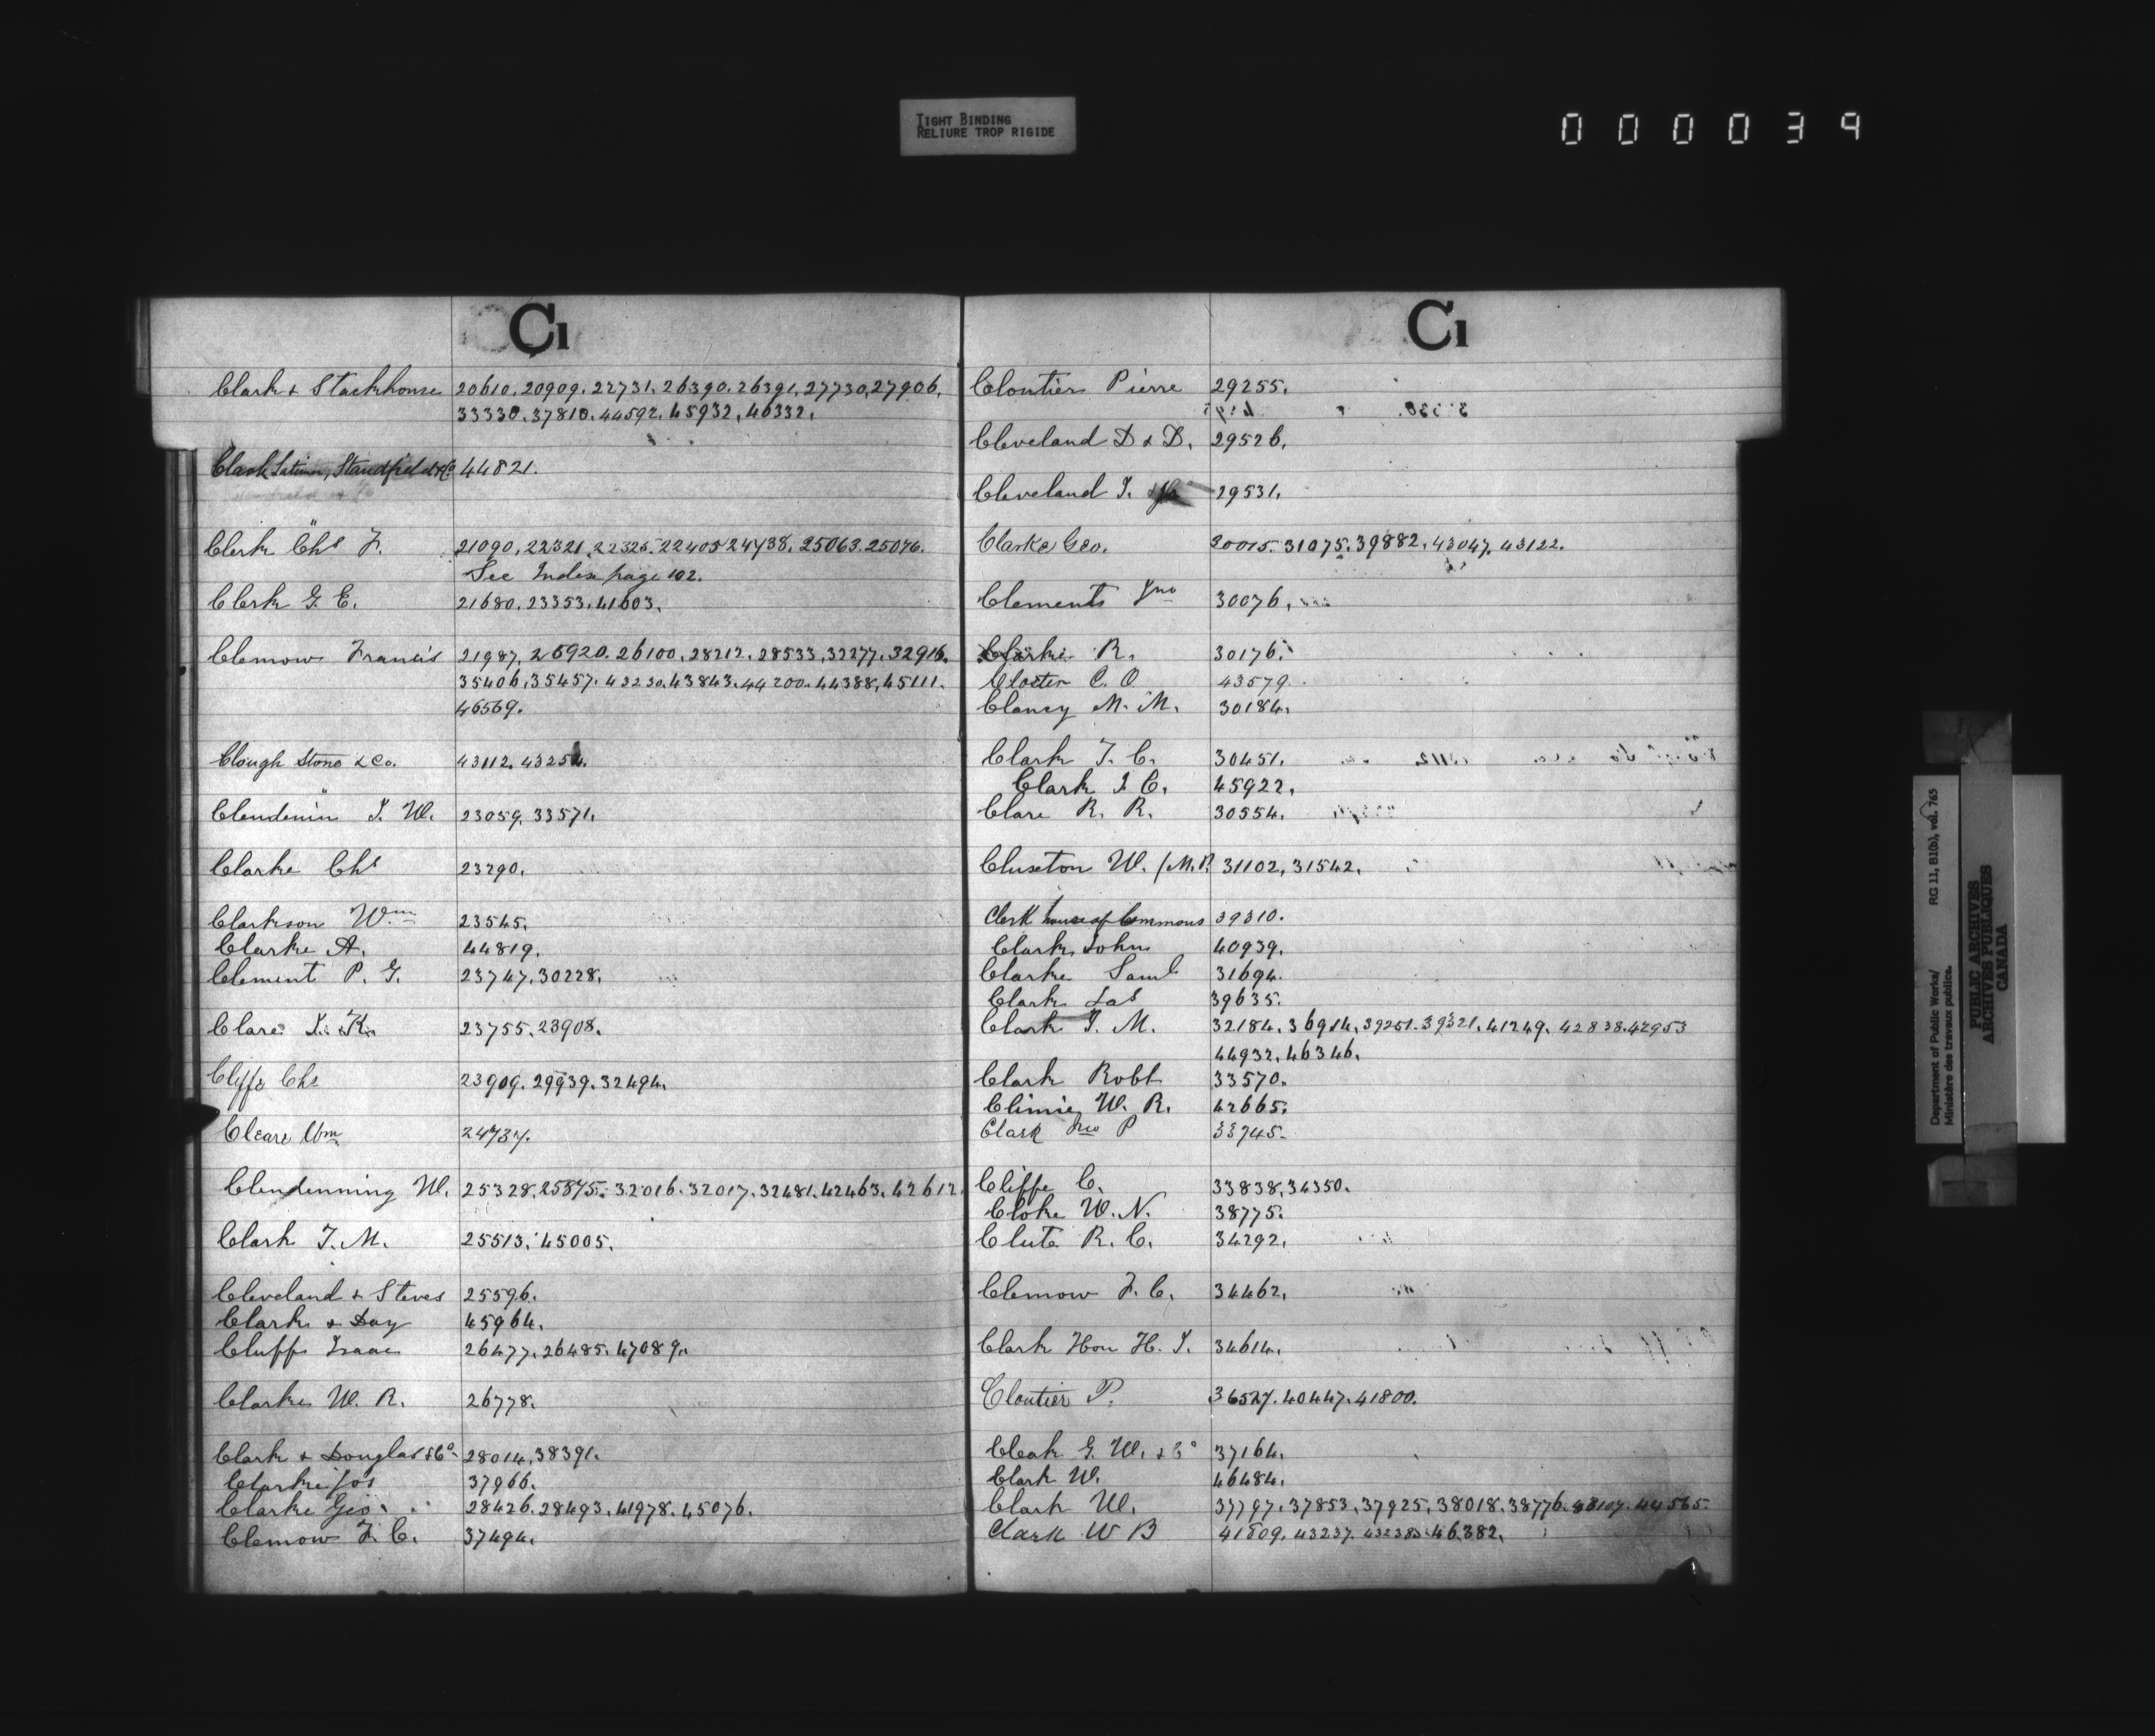 TIGHT BINDING
RELIURE TROP RIGIDE
000039
Cl
Clark & Stackhouse 20610, 20909. 22731. 26390. 26391, 27730, 27906,
33330. 37810. 44592. 45932, 46332.
Clark Standfield & Co 44821.
Clerk Chs F. 21090, 22321. 22325. 22405 24738. 25063. 25076.
See Index page 102.
Clerk G. E. 21680. 23353. 41603.
Clemow Francis 21987, 26920. 26100, 28212. 28533, 32277. 32916.
35406, 35457. 43230. 43843. 44200. 44388, 45111.
46569.
Clough Stone & Co. 43112. 43254.
Clendenin J. W. 23059, 33571.
Clarke Chs 23290.
Clarkson Wm 23545.
Clarke A. 44819.
Clement P. G. 23747. 30228.
Clare J. K. 23755. 23908.
Cliffe Chs 23909. 29939. 32494.
Cleare Wm 24737.
Clendenning W. 25328. 25875. 32016. 32017. 32481. 42463. 42612.
Clark T. M. 25513. 45005.
Cleveland & Steves 25596.
Clark & Day 45964.
Cluff Isaac 26477. 26485. 47089.
Clarke W. R. 26778.
Clark & Douglas & Co. 28014, 38391.
Clarke Jos 37966.
Clarke Geo. 28426. 28493. 41978. 45076.
Clemow F. C. 37494.
Cl
Cloutier Pierre 29255.
Cleveland D & D. 29526.
Cleveland J. 29531.
Clarke Geo. 30015. 31075. 39882. 43047. 43122.
Clements Jno 30076.
Clarke R. 30176.
Closter C. O 43579.
Clancy M. M. 30184.
Clark T. C. 30451.
Clark J. C. 45922.
Clare R. R. 30554.
Cluxton W. (M.P. 31102, 31542.
Clerk house of Commons 39310.
Clark John 40939.
Clarke Saml 31694.
Clark Jas 39635.
Clark J. M. 32184. 36914. 39251. 39321. 41249. 42838. 42953
44932. 46346.
Clark Robt 33570.
Climie W. R. 42665.
Clark Jno P 33745.
Cliffe C. 33838, 34350.
Cloke W. N. 38775.
Clute R. C. 34292.
Clemow F. C. 34462.
Clark Hon H. J. 34614.
Cloutier P. 36527. 40447. 41800.
Cleak G. W. & Co 37164.
Clark W. 46484.
Clark W. 37797. 37853. 37925. 38018. 38776. 43107. 44565.
Clark W B 41809. 43237. 43238. 46382.
Department of Public Works/
Ministère des travaux publics.
RG 11, B1(b), vol. 763
PUBLIC ARCHIVES
ARCHIVES PUBLIQUES
CANADA